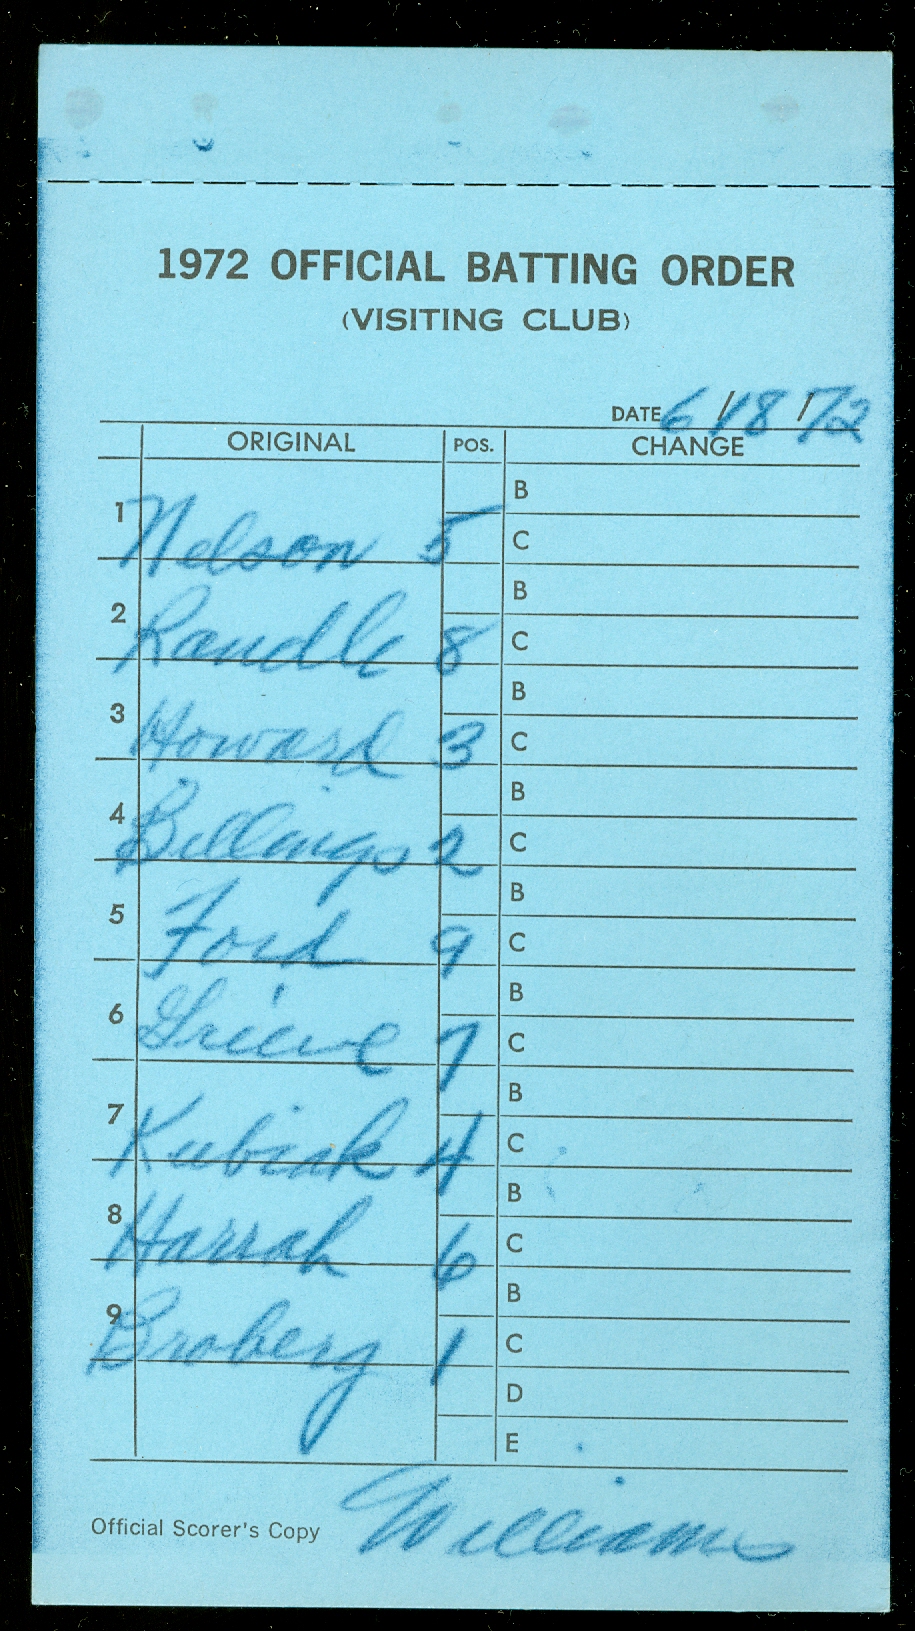 1972 OFFICIAL BATTING ORDER
(VISITING CLUB)
DATE 6/18/72
ORIGINAL POS. CHANGE
B
1 Nelson 5 C
B
2 Randle 8 C
B
3 Howard 3 C
B
4 Billings 2 C
B
5 Ford 9 C
B
6 Grieve 7 C
B
7 Kubiak 4 C
B
8 Harrah 6 C
B
9 Broberg 1 C
D
E
Official Scorer's Copy Williams